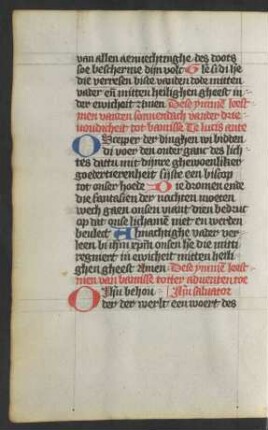 van allen aenuechtinghe des doots
soe bescherme dijn volc Glesi di he
die verresen biste vanden dode mitten
vader en̄ mitten heilighen gheest in
der ewicheit Amen Dese ymme leest
men vanden sonnendach vander
uondicheit tot vastene Te lucis ante
O Scepper der dinghen wi bidden
di voer den onder ganc des lich
tes dattu mit dijnre ghewoenliker
goedertierenheit sijste een biscop
tot onser hoede Die dromen ende
die fantasien der nachten moeten
wech gaen onsen viant dien bedruc
op dat onse lichame niet en werden
beulect Almachtighe vader ver
leen bi ihm xpm onsen he die mitti
regniert in ewicheit mitten heili
ghen gheest Amen Dese ymme leest
men van vastene totter aduenten toe
O Ihu behou Ihu saluator
der der werlt een woert des